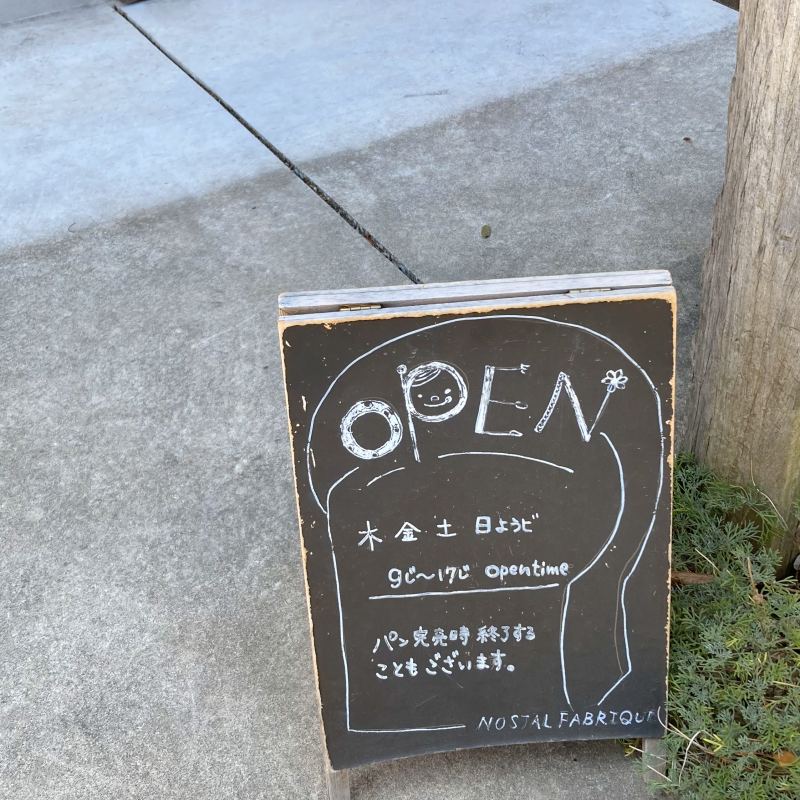 OPEN
木 金 土 日ようビ
9じ〜17じ opentime
パン完売時 終了する
こともございます。
NOSTAL FABRIQUE